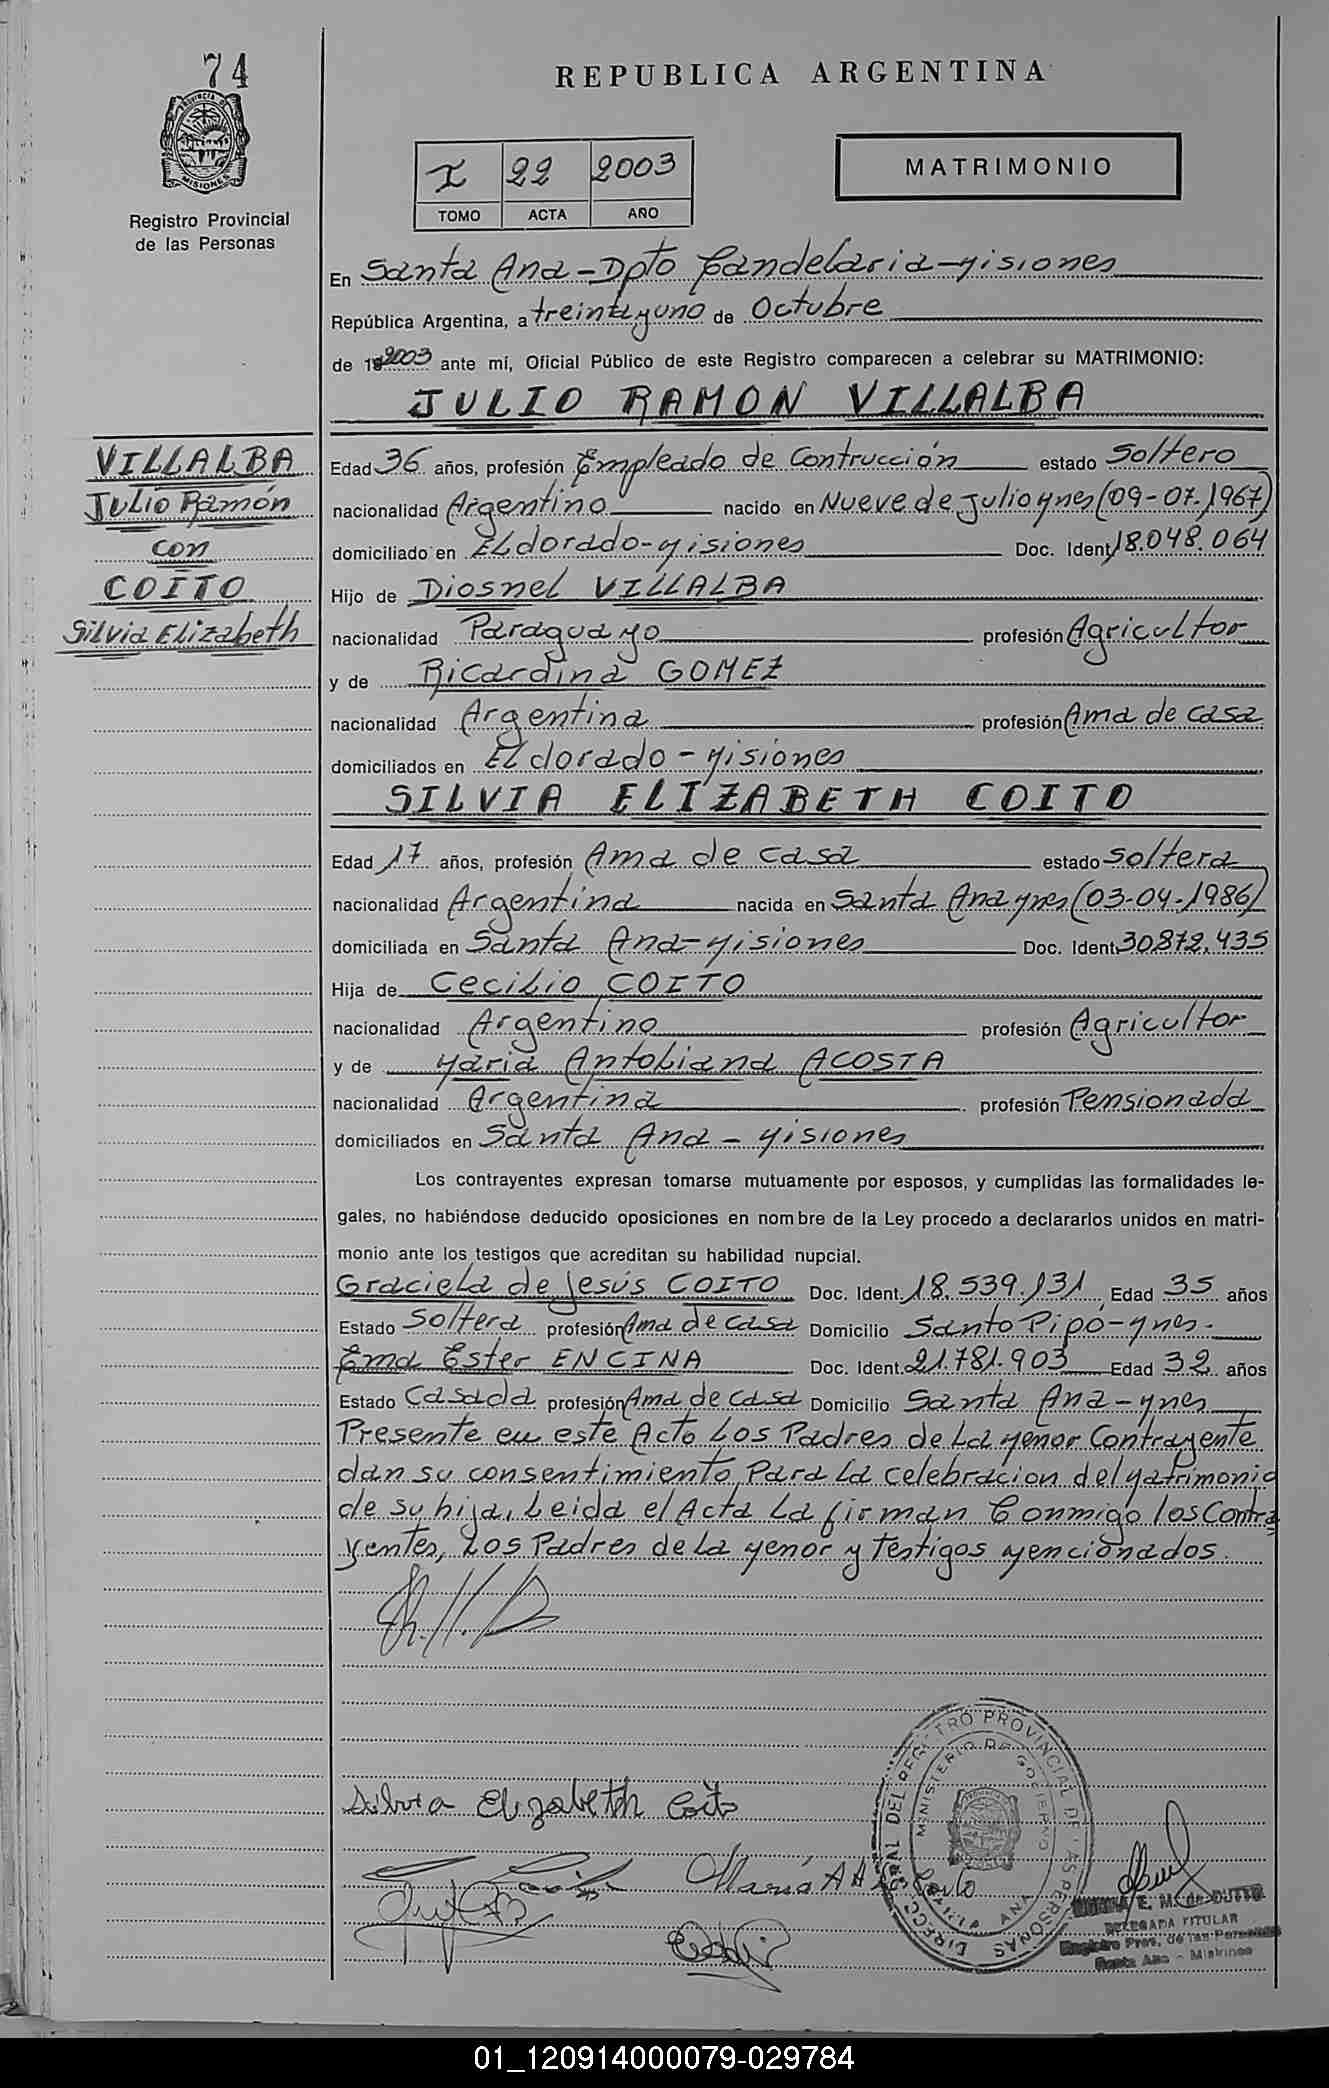 74
REPUBLICA ARGENTINA
PROVINCIA DE MISIONES
Registro Provincial
de las Personas
I 22 2003
TOMO ACTA AÑO
MATRIMONIO
En Santa Ana-Dpto Candelaria-Misiones
República Argentina, a treintiyuno de Octubre
de 19 2003 ante mí, Oficial Público de este Registro comparecen a celebrar su MATRIMONIO:
JULIO RAMON VILLALBA
VILLALBA
Julio Ramón
con
COITO
Silvia Elizabeth
Edad 36 años, profesión Empleado de Contrucción estado Soltero
nacionalidad Argentino nacido en Nueve de Julio Mnes (09-07-1967)
domiciliado en ELdorado-Misiones Doc. Ident 18.048.064
Hijo de Diosnel VILLALBA
nacionalidad Paraguayo profesión Agricultor
y de Ricardina GOMEZ
nacionalidad Argentina profesión Ama de casa
domiciliados en ELdorado-Misiones
SILVIA ELIZABETH COITO
Edad 17 años, profesión Ama de casa estado soltera
nacionalidad Argentina nacida en Santa Ana Mnes (03-04-1986)
domiciliada en Santa Ana-Misiones Doc. Ident. 30.872.435
Hija de Cecilio COITO
nacionalidad Argentino profesión Agricultor
y de Maria Antoliana ACOSTA
nacionalidad Argentina profesión Pensionada
domiciliados en Santa Ana-Misiones
Los contrayentes expresan tomarse mutuamente por esposos, y cumplidas las formalidades le-
gales, no habiéndose deducido oposiciones en nombre de la Ley procedo a declararlos unidos en matri-
monio ante los testigos que acreditan su habilidad nupcial.
Graciela de Jesús COITO Doc. Ident. 18.539.131 Edad 35 años
Estado Soltera profesión Ama de casa Domicilio Santo Pipó-Mnes.
Ema Ester ENCINA Doc. Ident. 21.781.903 Edad 32 años
Estado Casada profesión Ama de casa Domicilio Santa Ana-Mnes
Presente en este Acto Los Padres de La Menor Contrayente
dan su consentimiento Para La celebracion del Matrimonio
de su hija, Leida el Acta La firman Conmigo los Contra
yentes, Los Padres de La Menor y Testigos Mencionados.
Silvia Elizabeth Coito
María A A Coito
DIRECC. GRAL DEL REGISTRO PROVINCIAL DE LAS PERSONAS
MINISTERIO DE GOBIERNO
SANTA ANA
E. M. de DUTTO
DELEGADA TITULAR
Registro Prov. de las Personas
Santa Ana - Misiones
01_120914000079-029784